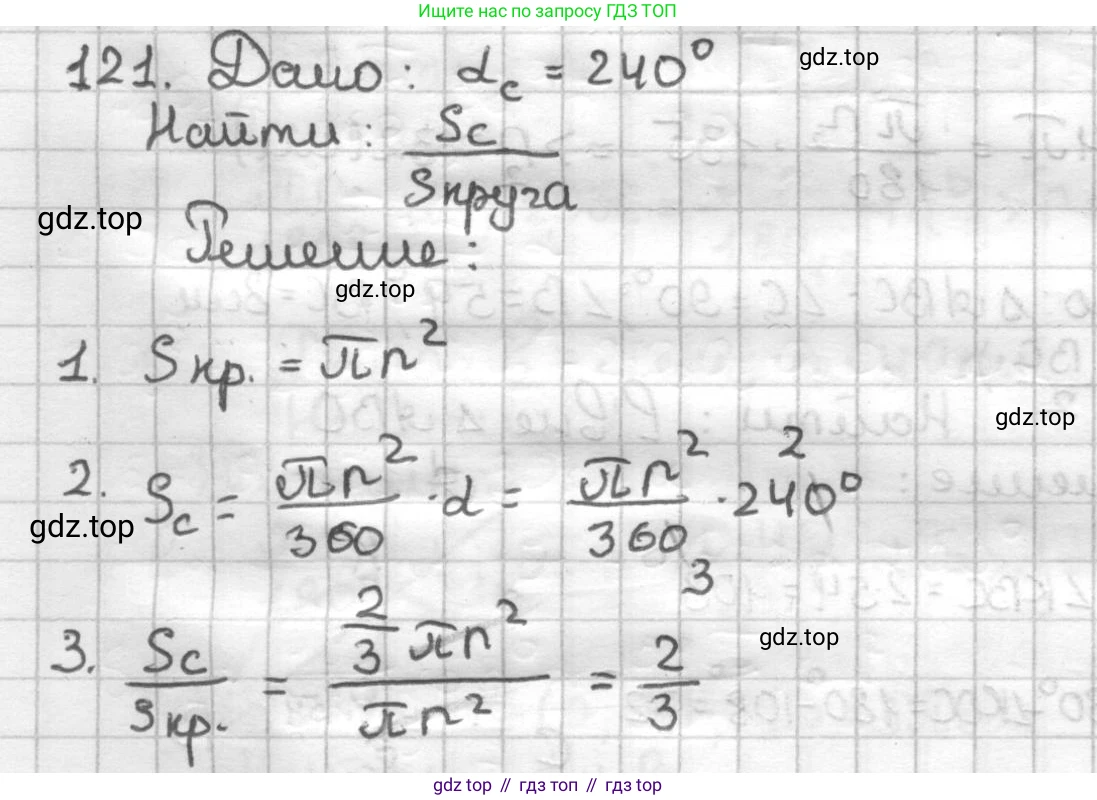 Ищите нас по запросу ГДЗ ТОП
121. Дано: α_c = 240°
gdz.top
Найти: Sc / Sкруга
gdz.top
Решение:
gdz.top
1. Sкр. = πr²
gdz.top
2. Sc = πr²/360 · α = πr²/360 · 240° 2 3
gdz.top
3. Sc/Sкр. = 2/3 πr² / πr² = 2/3
gdz.top
gdz top // гдз топ // gdz.top